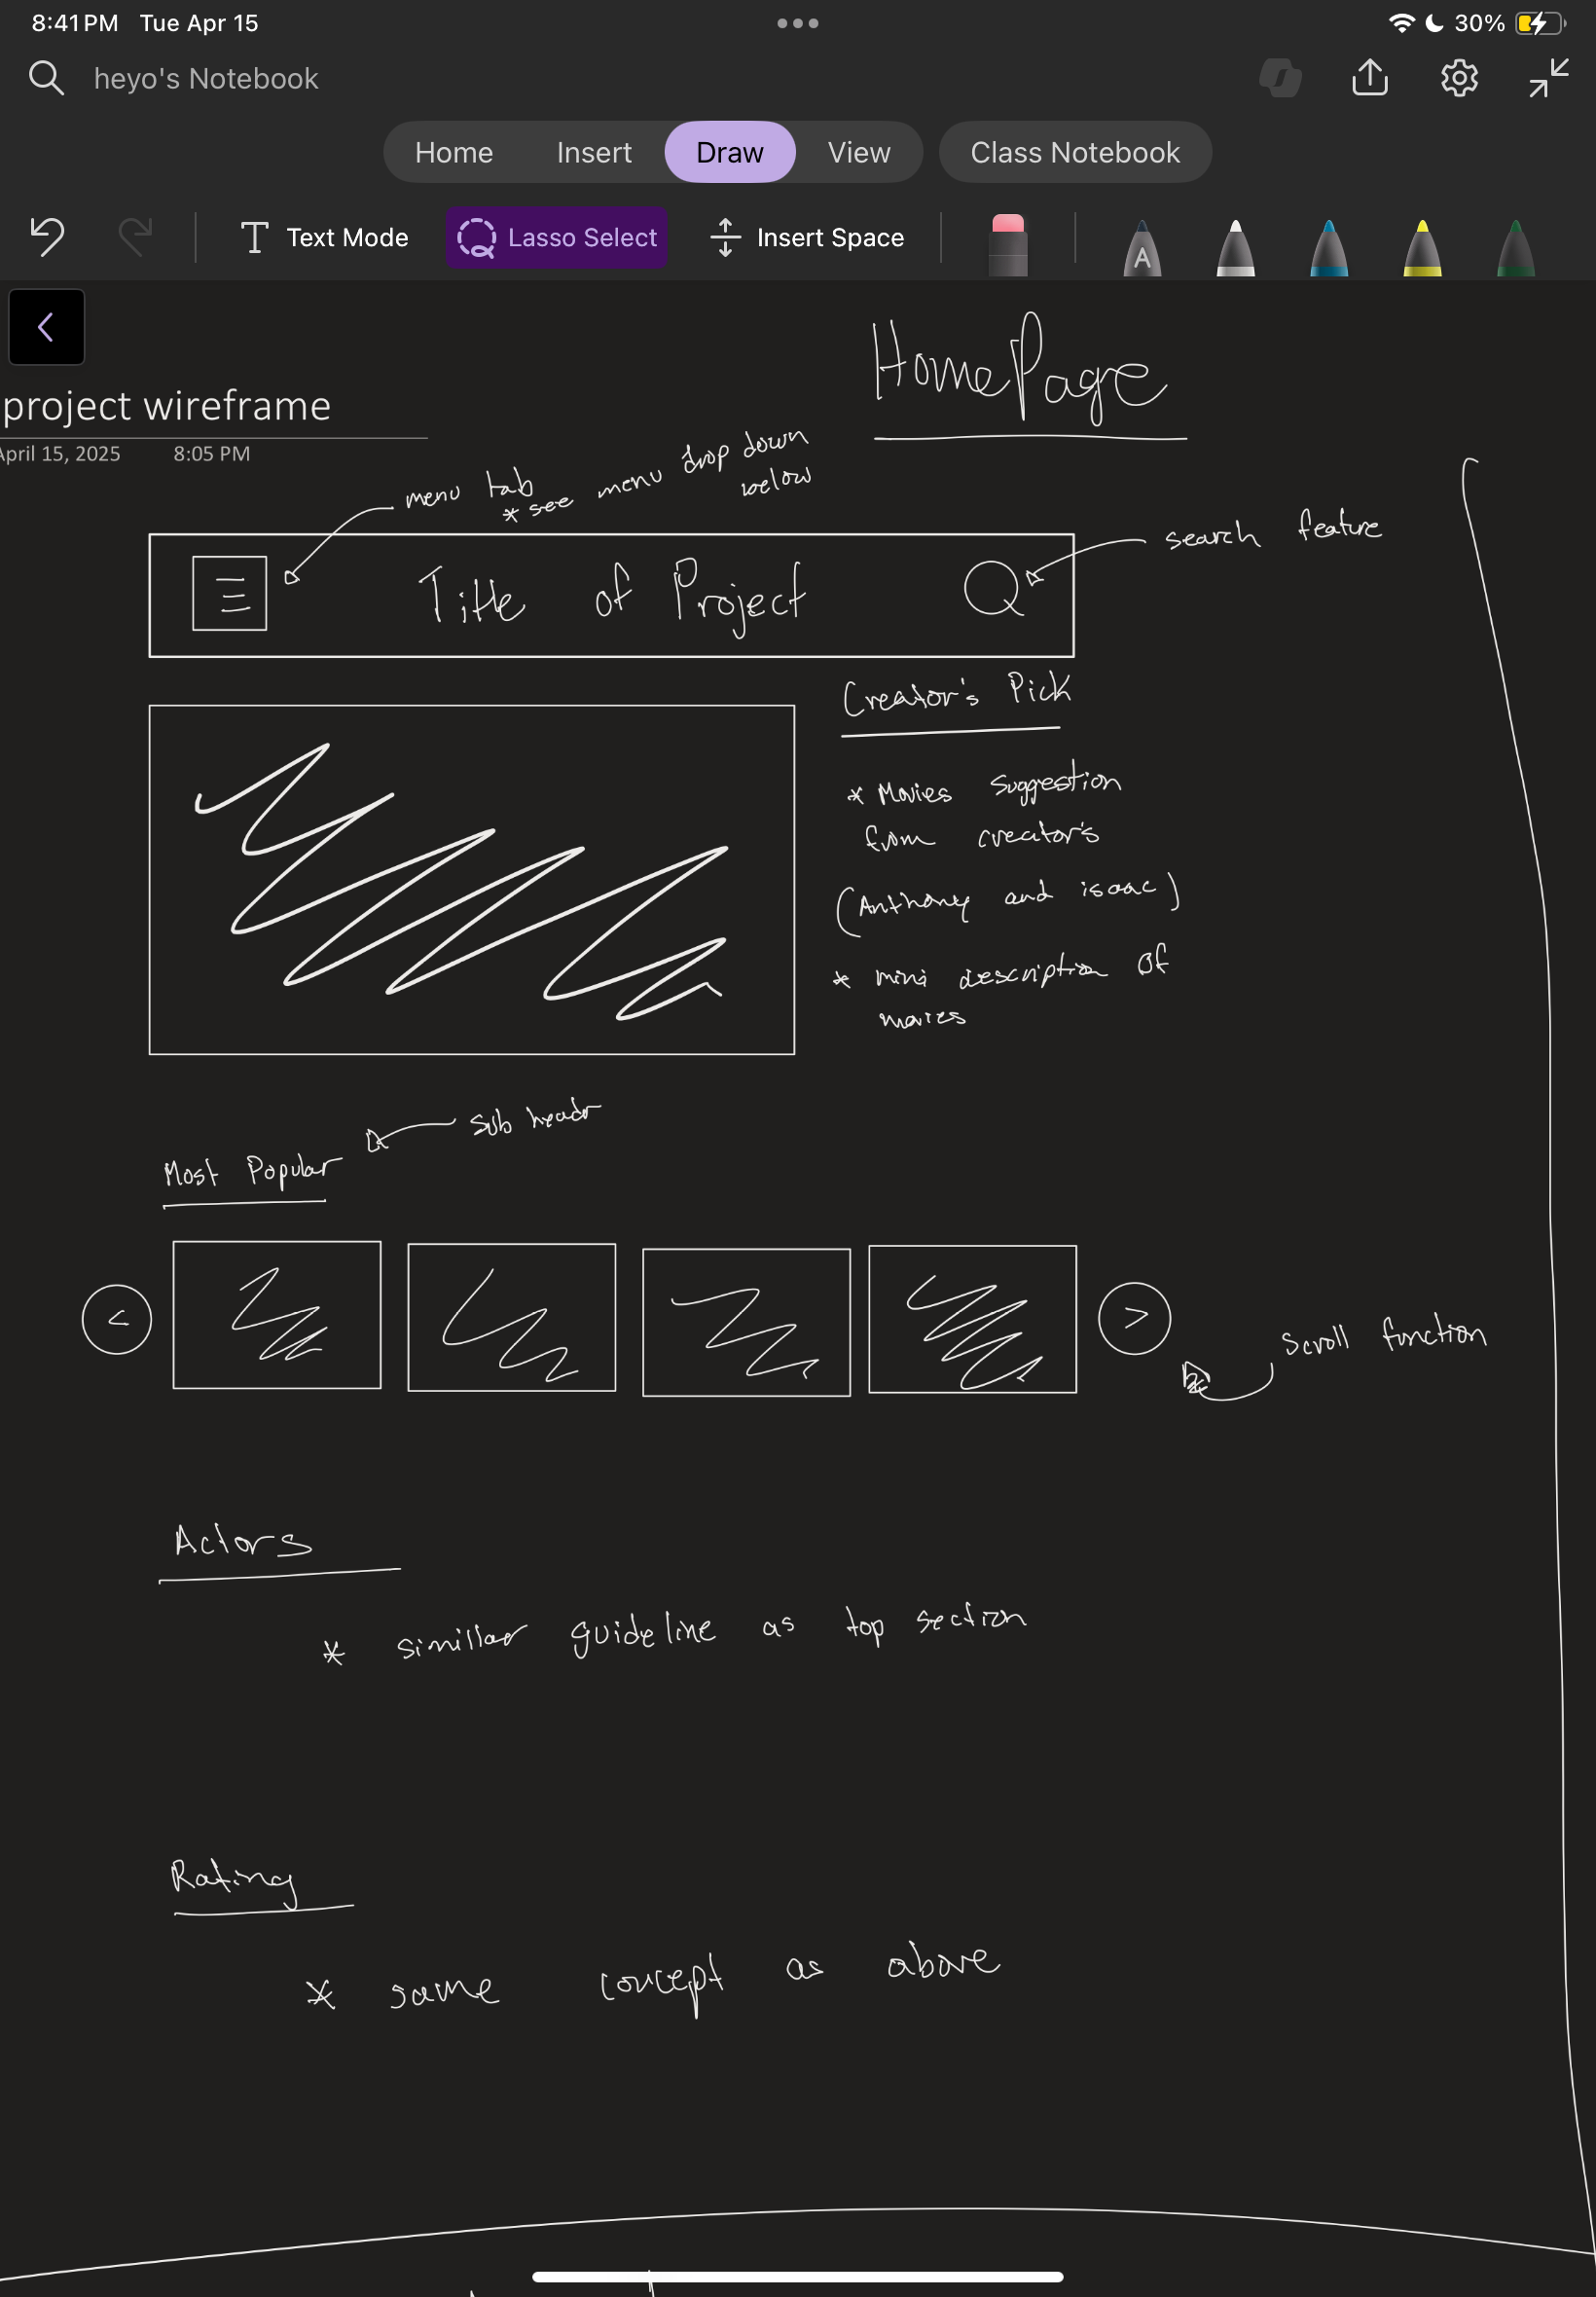 8:41 PM Tue Apr 15
30%
heyo's Notebook
Home Insert Draw View Class Notebook
Text Mode Lasso Select Insert Space
A
HomePage
project wireframe
April 15, 2025 8:05 PM
menu tab
* see menu drop down
below
search feature
Title of Project
Creator's Pick
* Movies suggestion
from creator's
(Anthony and isaac)
* mini description of
movies
sub header
Most Popular
< >
scroll function
Actors
* simillar guideline as top section
Rating
* same concept as above